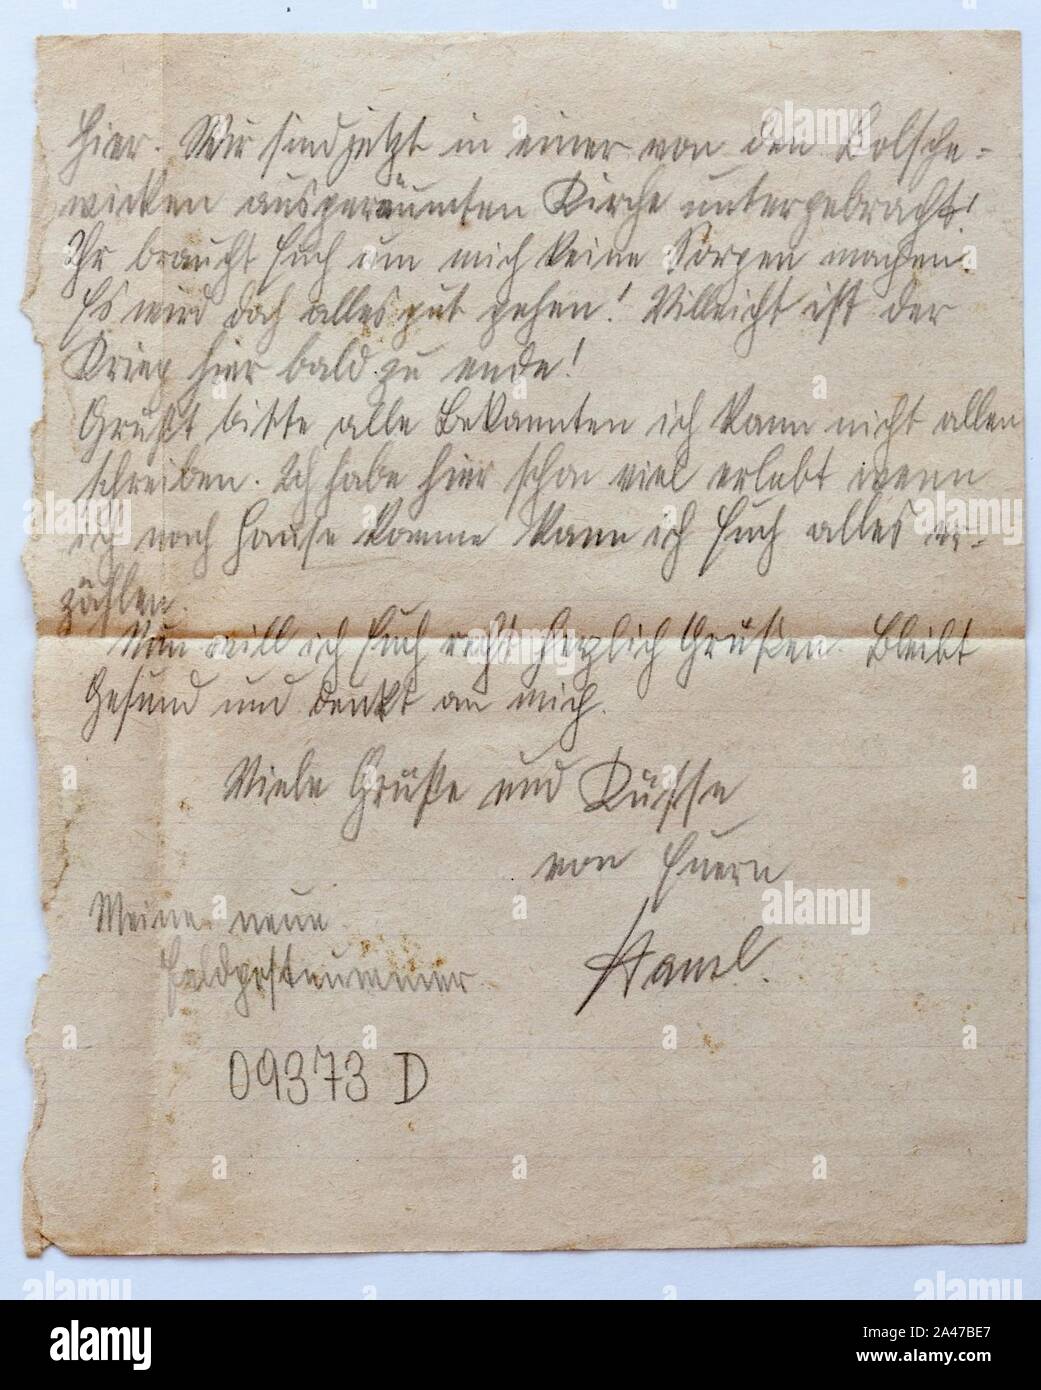 Hier. Wir sind jetzt in einer von den Bolsche-
wicken ausgeräumten Kirche untergebracht!
Ihr braucht Euch um mich keine Sorgen machen.
Es wird doch alles gut gehen! Villeicht ist der
Krieg hier bald zu ende!
Grußt bitte alle Bekannten ich kann nicht allen
schreiben. Ich habe hier schon viel erlebt wenn
ich nach Hause komme kann ich Euch alles er-
zählen.
Nun will ich Euch recht herzlich Grußen. Bleibt
Gesund und denkt an mich.
Viele Grüße und Küsse
von Euern
Meine neue
Feldpostnummer
09373 D
alamy
Image ID: 2A47BE7
www.alamy.com